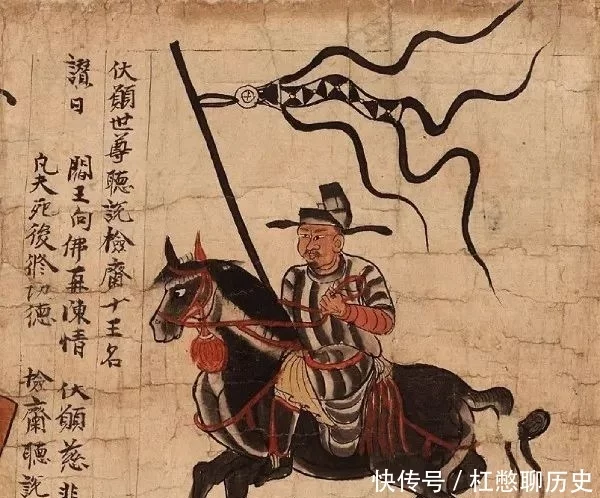 伏願世尊聽說檢齋十王名
讚曰 閻王向佛再陳情 伏願慈悲
凡夫死後修功德 檢齋聽說
快传号 / 杠憋聊历史